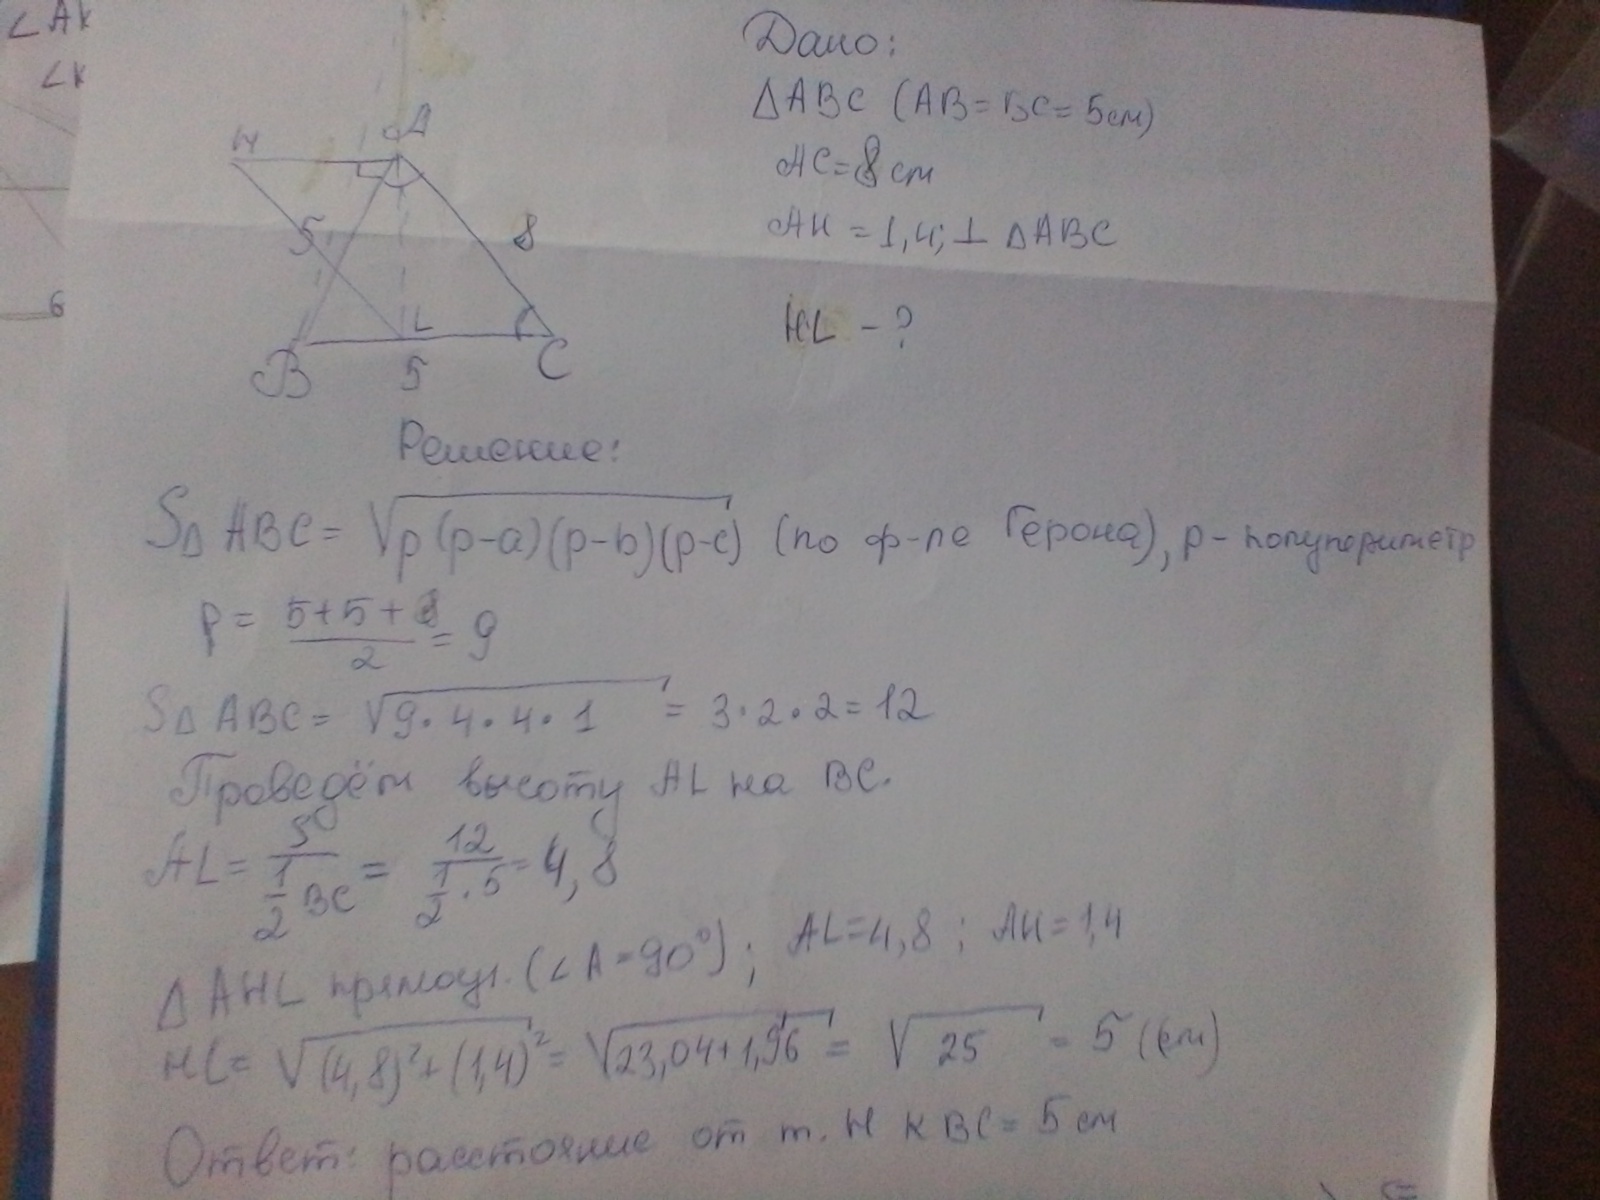 ∠AK
∠K
6
Дано:
△ABC (AB=BC=5см)
AC=8см
AH=1,4; ⊥ △ABC
HL - ?
H
A
5
8
L
B
5
C
Решение:
S△ABC= √p(p-a)(p-b)(p-c) (по ф-ле Герона), p - полупериметр
p= (5+5+8)/2 = 9
S△ABC= √9·4·4·1 = 3·2·2=12
Проведём высоту AL на BC.
AL= S/(1/2 BC) = 12/(1/2·5) = 4,8
△AHL прямоуг. (∠A=90°); AL=4,8; AH=1,4
HL= √(4,8)²+(1,4)² = √23,04+1,96 = √25 = 5 (см)
Ответ: расстояние от т. H к BC= 5см